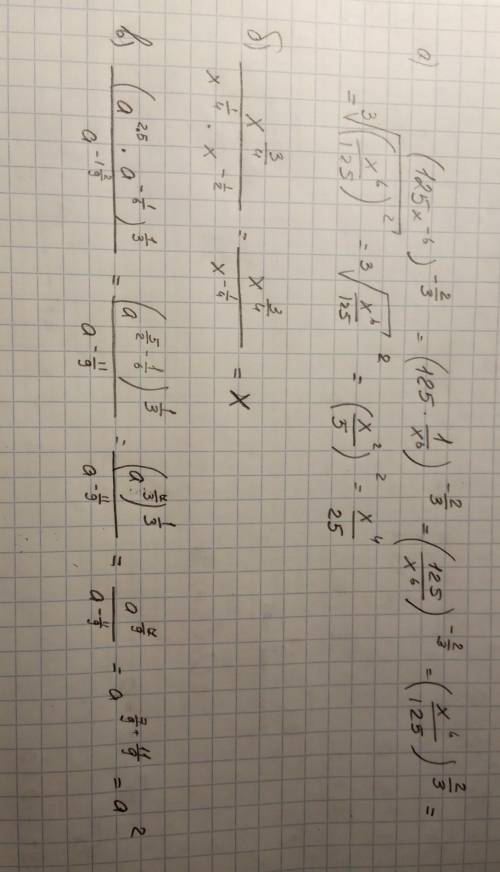 а) (125x^{-6})^{-\frac{2}{3}} = (125 \cdot \frac{1}{x^6})^{-\frac{2}{3}} = (\frac{125}{x^6})^{-\frac{2}{3}} = (\frac{x^6}{125})^{\frac{2}{3}} =
= \sqrt[3]{(\frac{x^6}{125})^2} = \sqrt[3]{\frac{x^6}{125}}^2 = (\frac{x^2}{5})^2 = \frac{x^4}{25}
б) \frac{x^{\frac{3}{4}}}{x^{\frac{1}{4}} \cdot x^{-\frac{1}{2}}} = \frac{x^{\frac{3}{4}}}{x^{-\frac{1}{4}}} = x
в) \frac{(a^{2,5} \cdot a^{-\frac{1}{6}})^{\frac{1}{3}}}{a^{-1\frac{2}{9}}} = \frac{(a^{\frac{5}{2}-\frac{1}{6}})^{\frac{1}{3}}}{a^{-\frac{11}{9}}} = \frac{(a^{\frac{7}{3}})^{\frac{1}{3}}}{a^{-\frac{11}{9}}} = \frac{a^{\frac{7}{9}}}{a^{-\frac{11}{9}}} = a^{\frac{7}{9}+\frac{11}{9}} = a^2